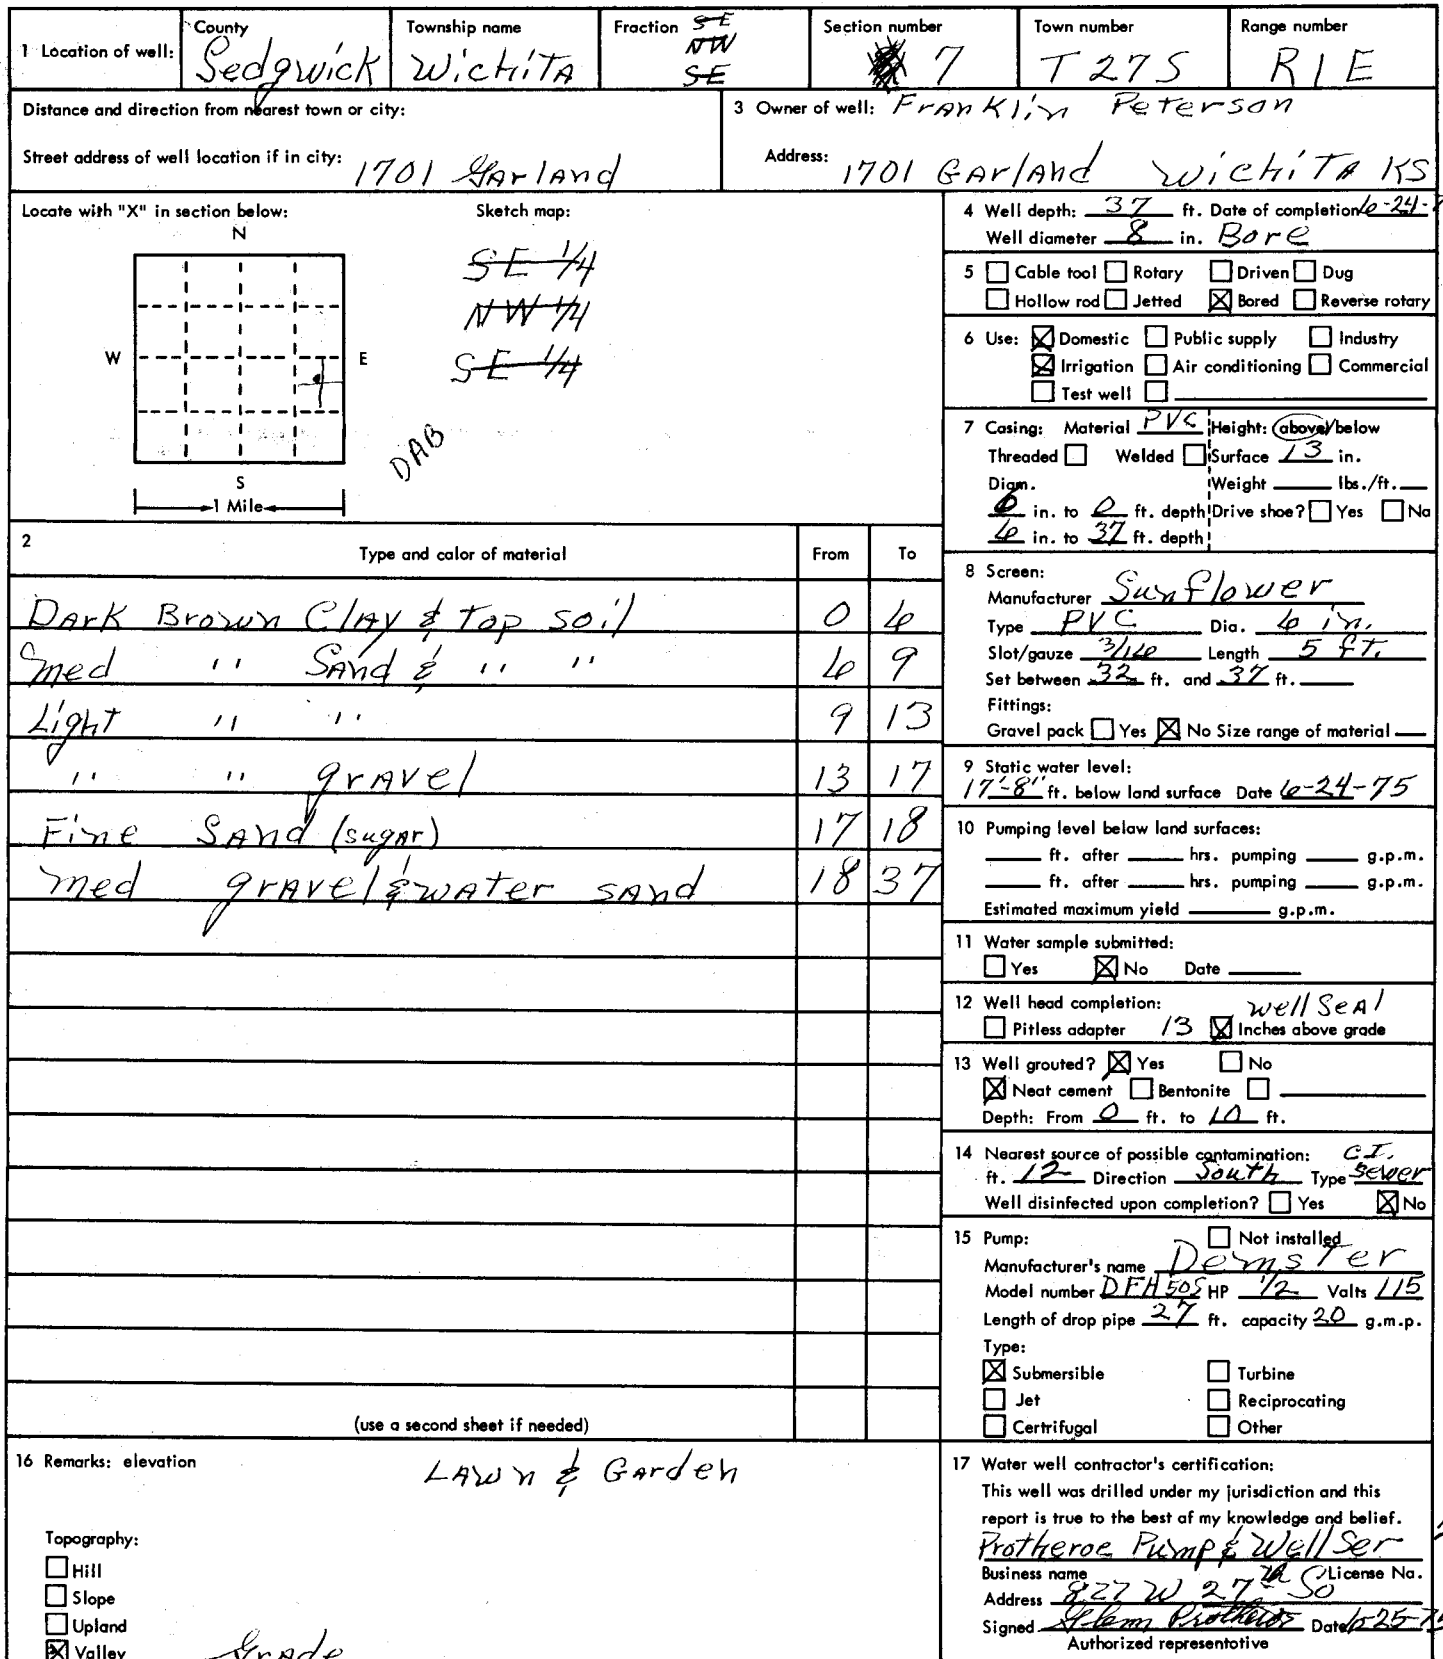 1 Location of well: County Sedgwick Township name Wichita Fraction SE NW SE Section number 7 Town number T 27 S Range number R1E
Distance and direction from nearest town or city:
Street address of well location if in city: 1701 Garland
3 Owner of well: Franklin Peterson
Address: 1701 Garland Wichita KS
Locate with "X" in section below:
N
W E
S
1 Mile
Sketch map:
SE 1/4
NW 1/4
SE 1/4
DAB
2 Type and color of material From To
Dark Brown Clay & top soil 0 6
med " Sand & " " 6 9
Light " " 9 13
" " gravel 13 17
Fine Sand (sugar) 17 18
med gravel & water sand 18 37
(use a second sheet if needed)
4 Well depth: 37 ft. Date of completion 6-24-7
Well diameter 8 in. Bore
5 Cable tool Rotary Driven Dug
Hollow rod Jetted Bored Reverse rotary
6 Use: Domestic Public supply Industry
Irrigation Air conditioning Commercial
Test well
7 Casing: Material PVC Height: above/below
Threaded Welded Surface 13 in.
Diam. Weight lbs./ft.
6 in. to 0 ft. depth Drive shoe? Yes No
6 in. to 37 ft. depth
8 Screen:
Manufacturer Sunflower
Type PVC Dia. 6 in.
Slot/gauze 3/16 Length 5 ft.
Set between 32 ft. and 37 ft.
Fittings:
Gravel pack Yes No Size range of material
9 Static water level:
17'-8" ft. below land surface Date 6-24-75
10 Pumping level below land surfaces:
ft. after hrs. pumping g.p.m.
ft. after hrs. pumping g.p.m.
Estimated maximum yield g.p.m.
11 Water sample submitted:
Yes No Date
12 Well head completion: well seal
Pitless adapter 13 Inches above grade
13 Well grouted? Yes No
Neat cement Bentonite
Depth: From 0 ft. to 10 ft.
14 Nearest source of possible contamination: C.I.
ft. 12 Direction South Type Sewer
Well disinfected upon completion? Yes No
15 Pump: Not installed
Manufacturer's name Demster
Model number DFH50S HP 1/2 Volts 115
Length of drop pipe 27 ft. capacity 20 g.m.p.
Type:
Submersible Turbine
Jet Reciprocating
Certrifugal Other
16 Remarks: elevation Lawn & Garden
Topography:
Hill
Slope
Upland
Valley Grade
17 Water well contractor's certification:
This well was drilled under my jurisdiction and this
report is true to the best of my knowledge and belief.
Protheroe Pump & Well Ser
Business name License No.
Address 827 W 27th So
Signed Glenn Protheroe Date 6-25-75
Authorized representative